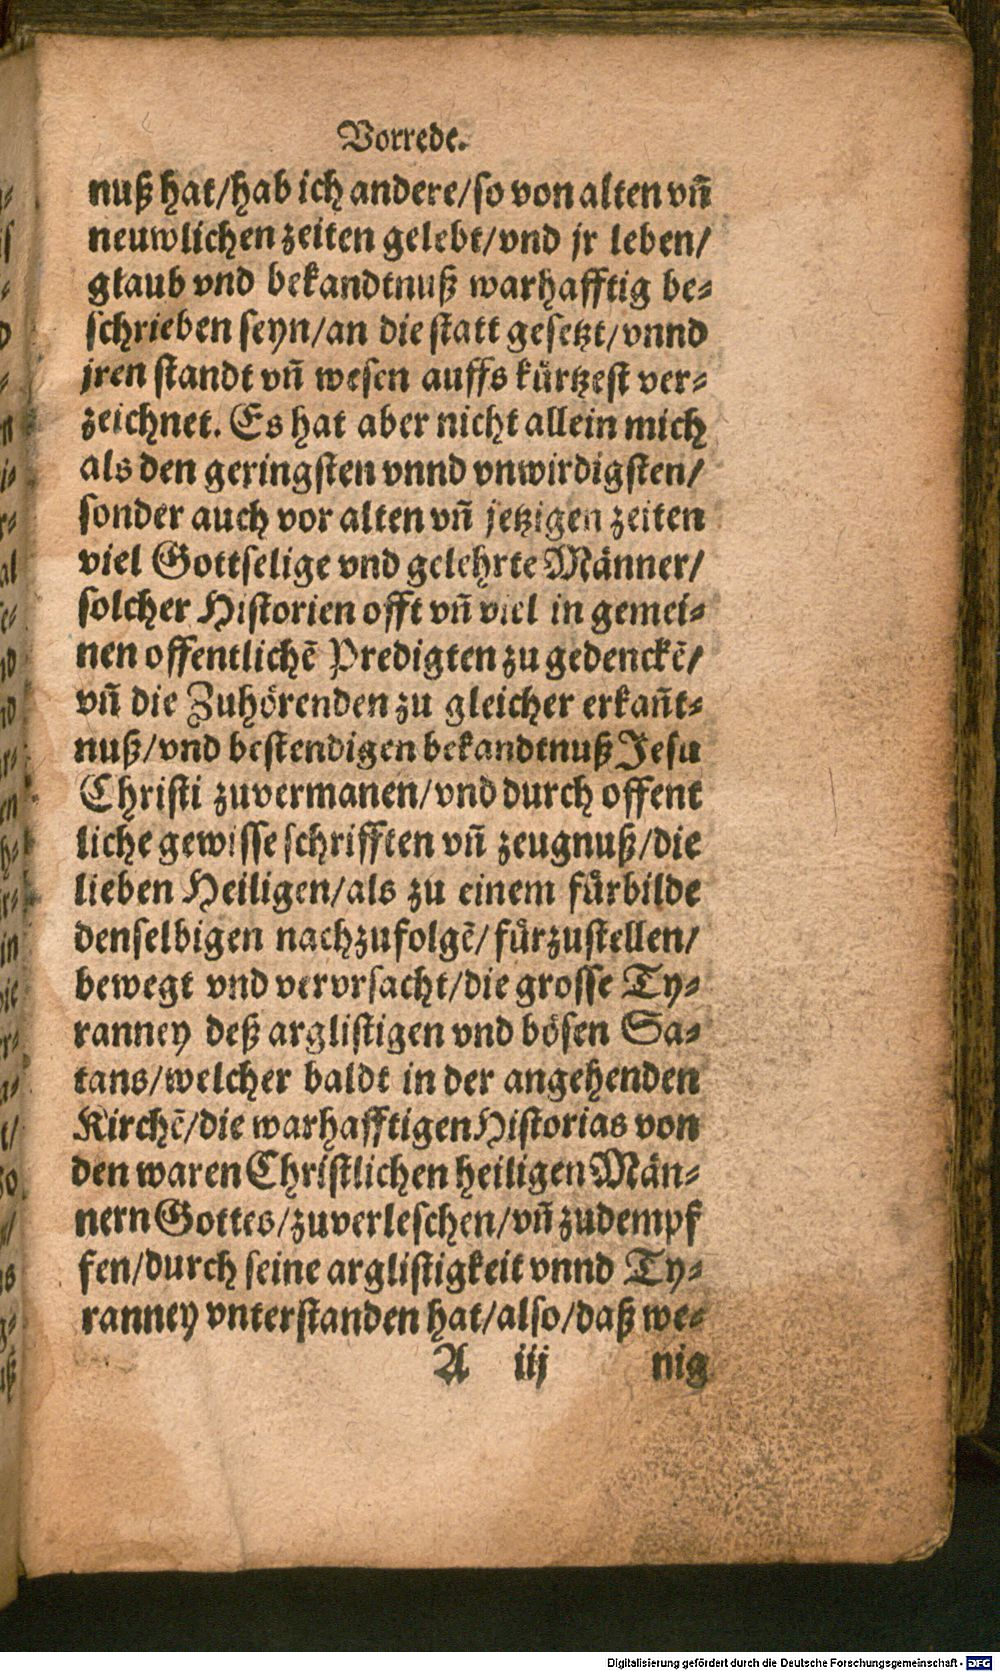 Vorrede.
nuß hat/hab ich andere/so von alten vñ
neuwlichen zeiten gelebt/vnd jr leben/
glaub vnd bekandtnuß warhafftig be-
schrieben seyn/an die statt gesetzt/vnnd
jren standt vñ wesen auffs kürtzest ver-
zeichnet. Es hat aber nicht allein mich
als den geringsten vnnd vnwirdigsten/
sonder auch vor alten vñ jetzigen zeiten
viel Gottselige vnd gelehrte Männer/
solcher Historien offt vñ viel in gemei-
nen offentlichẽ Predigten zu gedenckẽ/
vñ die Zuhörenden zu gleicher erkañt-
nuß/vnd bestendigen bekandtnuß Jesu
Christi zuvermanen/vnd durch offent
liche gewisse schrifften vñ zeugnuß/die
lieben Heiligen/als zu einem fürbilde
denselbigen nachzufolgẽ/fürzustellen/
bewegt vnd vervrsacht/die grosse Ty-
ranney deß arglistigen vnd bösen Sa-
tans/welcher baldt in der angehenden
Kirchẽ/die warhafftigen Historias von
den waren Christlichen heiligen Män-
nern Gottes/zuverleschen/vñ zudempf
fen/durch seine arglistigkeit vnnd Ty-
ranney vnterstanden hat/also/daß we-
A iij nig
Digitalisierung gefördert durch die Deutsche Forschungsgemeinschaft - DFG